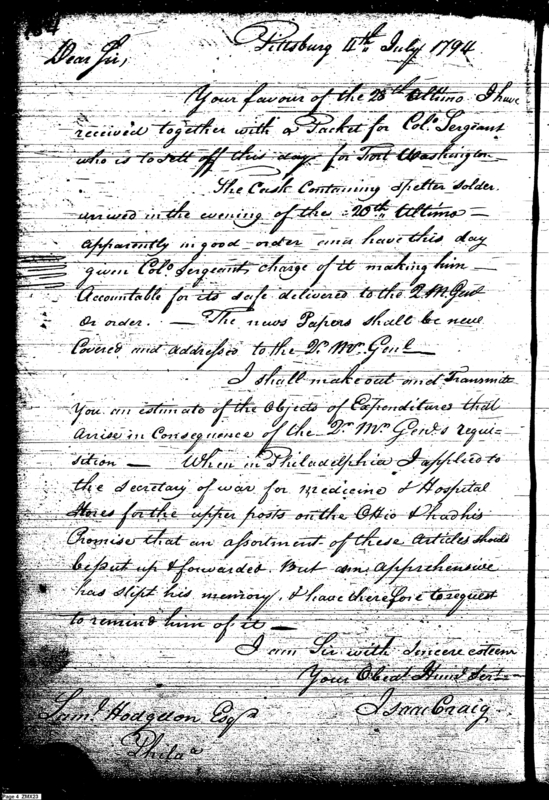 184
Pittsburg 4th July 1794
Dear Sir,
Your favour of the 28th Ultimo I have
received together with a Packet for Colo. Sergeant
who is to sett off this day for Fort Washington
The Cask Containing Spelter solder
arrived in the evening of the 20th Ultimo —
apparently in good order and have this day
given Colo Sergeant charge of it making him —
Accountable for its safe delivered to the Q. M. Genl
or order. — The news Papers shall be new
Covered and addressed to the Qr. Mr. Genl —
I shall make out and Transmitt
You an estimate of the Objects of Expenditures that
arise in Consequence of the Qr Mr Genl's requi-
sition — When in Philadelphia I applied to
the Secretary of war for Medicine & Hospital
Stores for the upper posts on the Ohio & had his
Promise that an assortment of these Articles should
be put up & forwarded. But am Apprehensive
has slipt his memory, & have therefore to request
to remind him of it —
I am Sir with sincere esteem
Your Obedt Huml Sert
Isaac Craig
Saml Hodgdon Esqr
Phila
Page 4 ZMX23